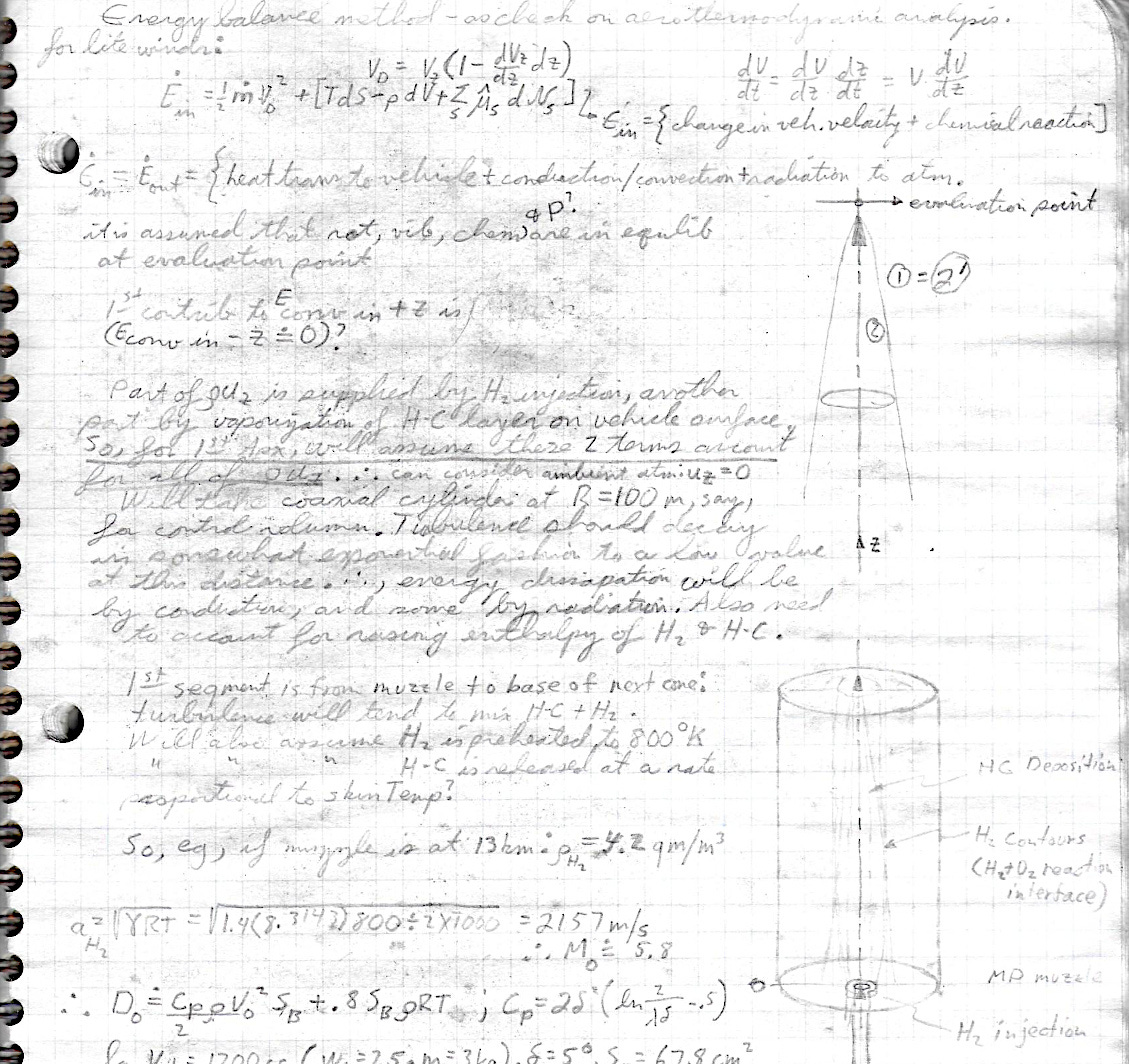 Energy balance method - as check on aerothermodynamic analysis.
for lite winds:
V_D = V_z (1 - dV_z/dz dz)
dV/dt = dV/dz dz/dt = V dV/dz
Ė_in = ½ ṁ V_D² + [TdS - pdV + Σ_s μ̂_s dN_s]
Ė_in = {change in veh. velocity + chemical reaction]
Ė_in = Ė_out = {heat trans to vehicle + conduction/convection + radiation to atm.
evaluation point
& P?
it is assumed that rot, vib, chem are in equilib
at evaluation point
① = ②'
②
1st contrib to E conv in + z is
(E conv in - z ≐ 0)?
Part of ρu_z is supplied by H₂ injection, another
part by vaporization of H-C layer on vehicle surface,
So, for 1st , will assume these 2 terms account
for all of ρu_z. ∴ can consider ambient atm: u_z = 0
Will take coaxial cylinder at R = 100 m, say,
for control volumn. Turbulence should decay
in somewhat exponential fashion to a low value
at this distance. ∴, energy dissapation will be
by conduction, and some by radiation. Also need
to account for raising enthalpy of H₂ & H-C.
z
1st segment is from muzzle to base of next cone:
turbulence will tend to mix H-C + H₂.
Will also assume H₂ is preheated to 800°K
" " " H-C is released at a rate
proportional to skin Temp?
HC Deposition
So, eg, if muzzle is at 13 km: ρ_H₂ = 4.2 gm/m³
H₂ Contours
(H₂+O₂ reaction
interface)
a_H₂ = √γRT = √1.4(8.3143)800÷2×1000 = 2157 m/s
∴ M₀ ≐ 5.8
MP muzzle
0
∴ D₀ ≐ C_p ρV₀²/2 S_B + .8 S_B ρRT ; C_p = 2δ (ln 2/λδ - .5)
H₂ injection
= 1200 δ = 5°, = 67.8 cm²